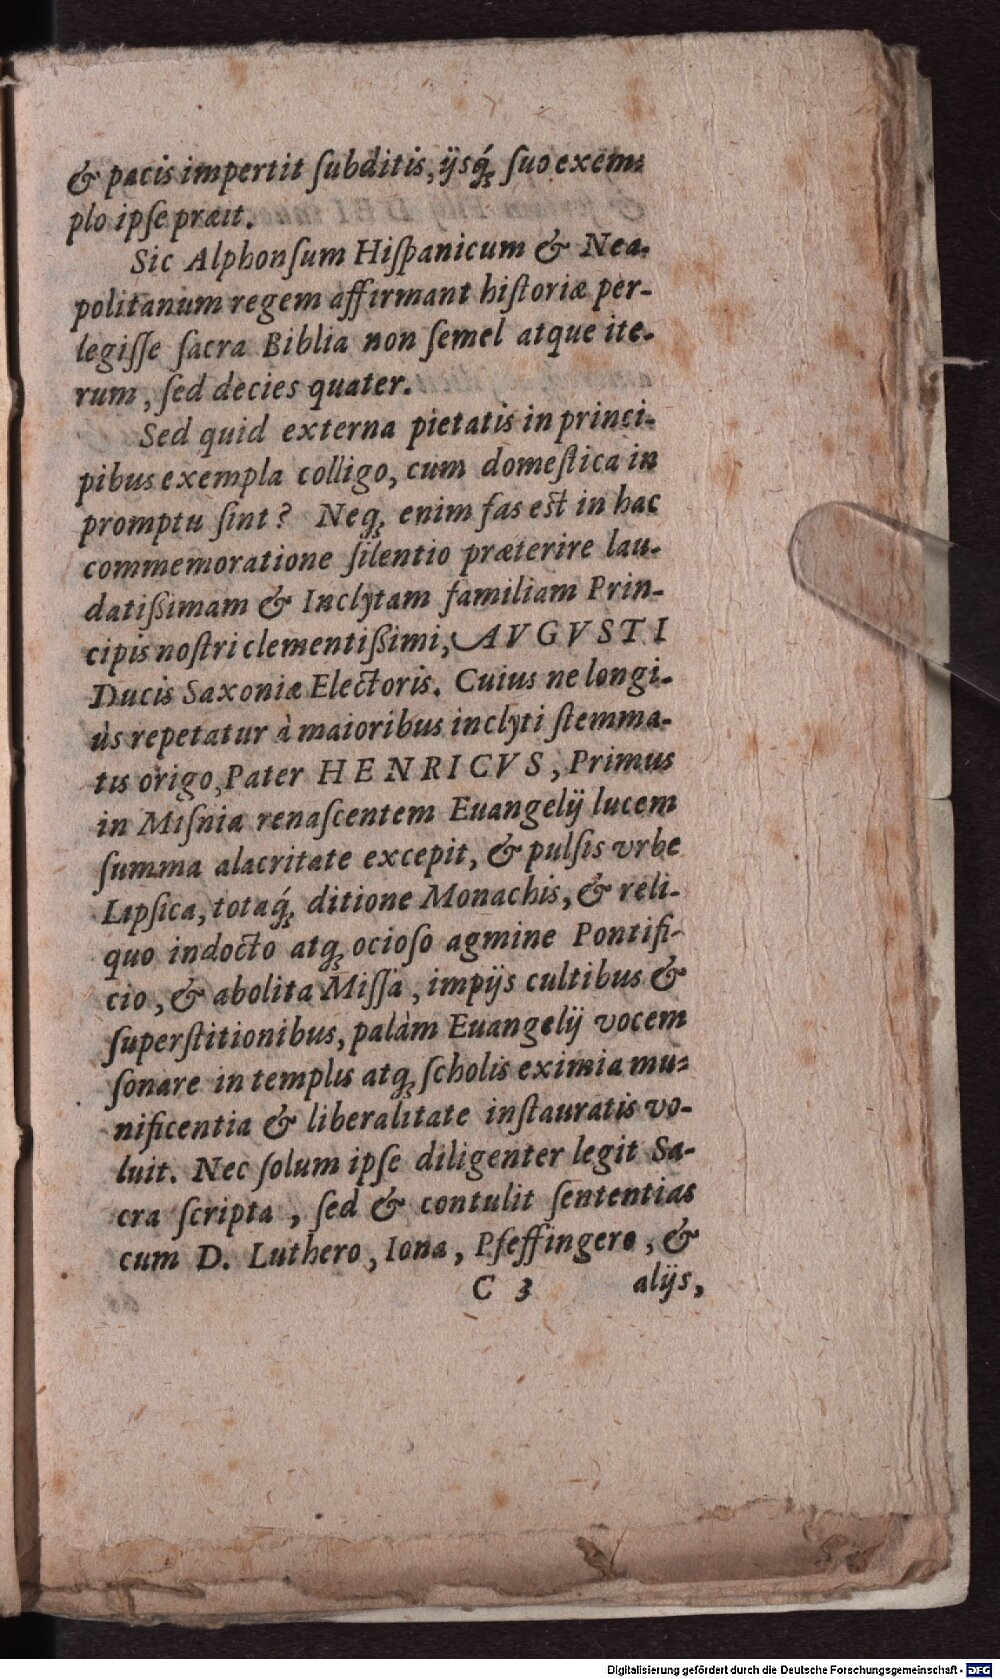 & pacis impertit ſubditis, ijsq́ꝫ ſuo exem-
plo ipſe præit.
Sic Alphonſum Hiſpanicum & Nea-
politanum regem affirmant hiſtoriæ per-
legiſſe ſacra Biblia non ſemel atque ite-
rum, ſed decies quater.
Sed quid externa pietatis in princi-
pibus exempla colligo, cum domeſtica in
promptu ſint? Neqꝫ enim fas est in hac
commemoratione ſilentio præterire lau-
datißimam & Inclytam familiam Prin-
cipis noſtri clementißimi, AVGVSTI
Ducis Saxoniæ Electoris. Cuius ne longi-
ùs repetatur à maioribus inclyti ſtemma-
tis origo, Pater HENRICVS, Primus
in Miſnia renaſcentem Euangelij lucem
ſumma alacritate excepit, & pulſis vrbe
Lipſica, totaq́ꝫ ditione Monachis, & reli-
quo indocto atqꝫ ocioſo agmine Pontifi-
cio, & abolita Miſſa, impijs cultibus &
ſuperſtitionibus, palàm Euangelij vocem
ſonare in templis atqꝫ ſcholis eximia mu-
nificentia & liberalitate inſtauratis vo-
luit. Nec ſolum ipſe diligenter legit Sa-
cra ſcripta, ſed & contulit ſententias
cum D. Luthero, Iona, Pfeffingero, &
C 3 alijs,
Digitalisierung gefördert durch die Deutsche Forschungsgemeinschaft - DFG